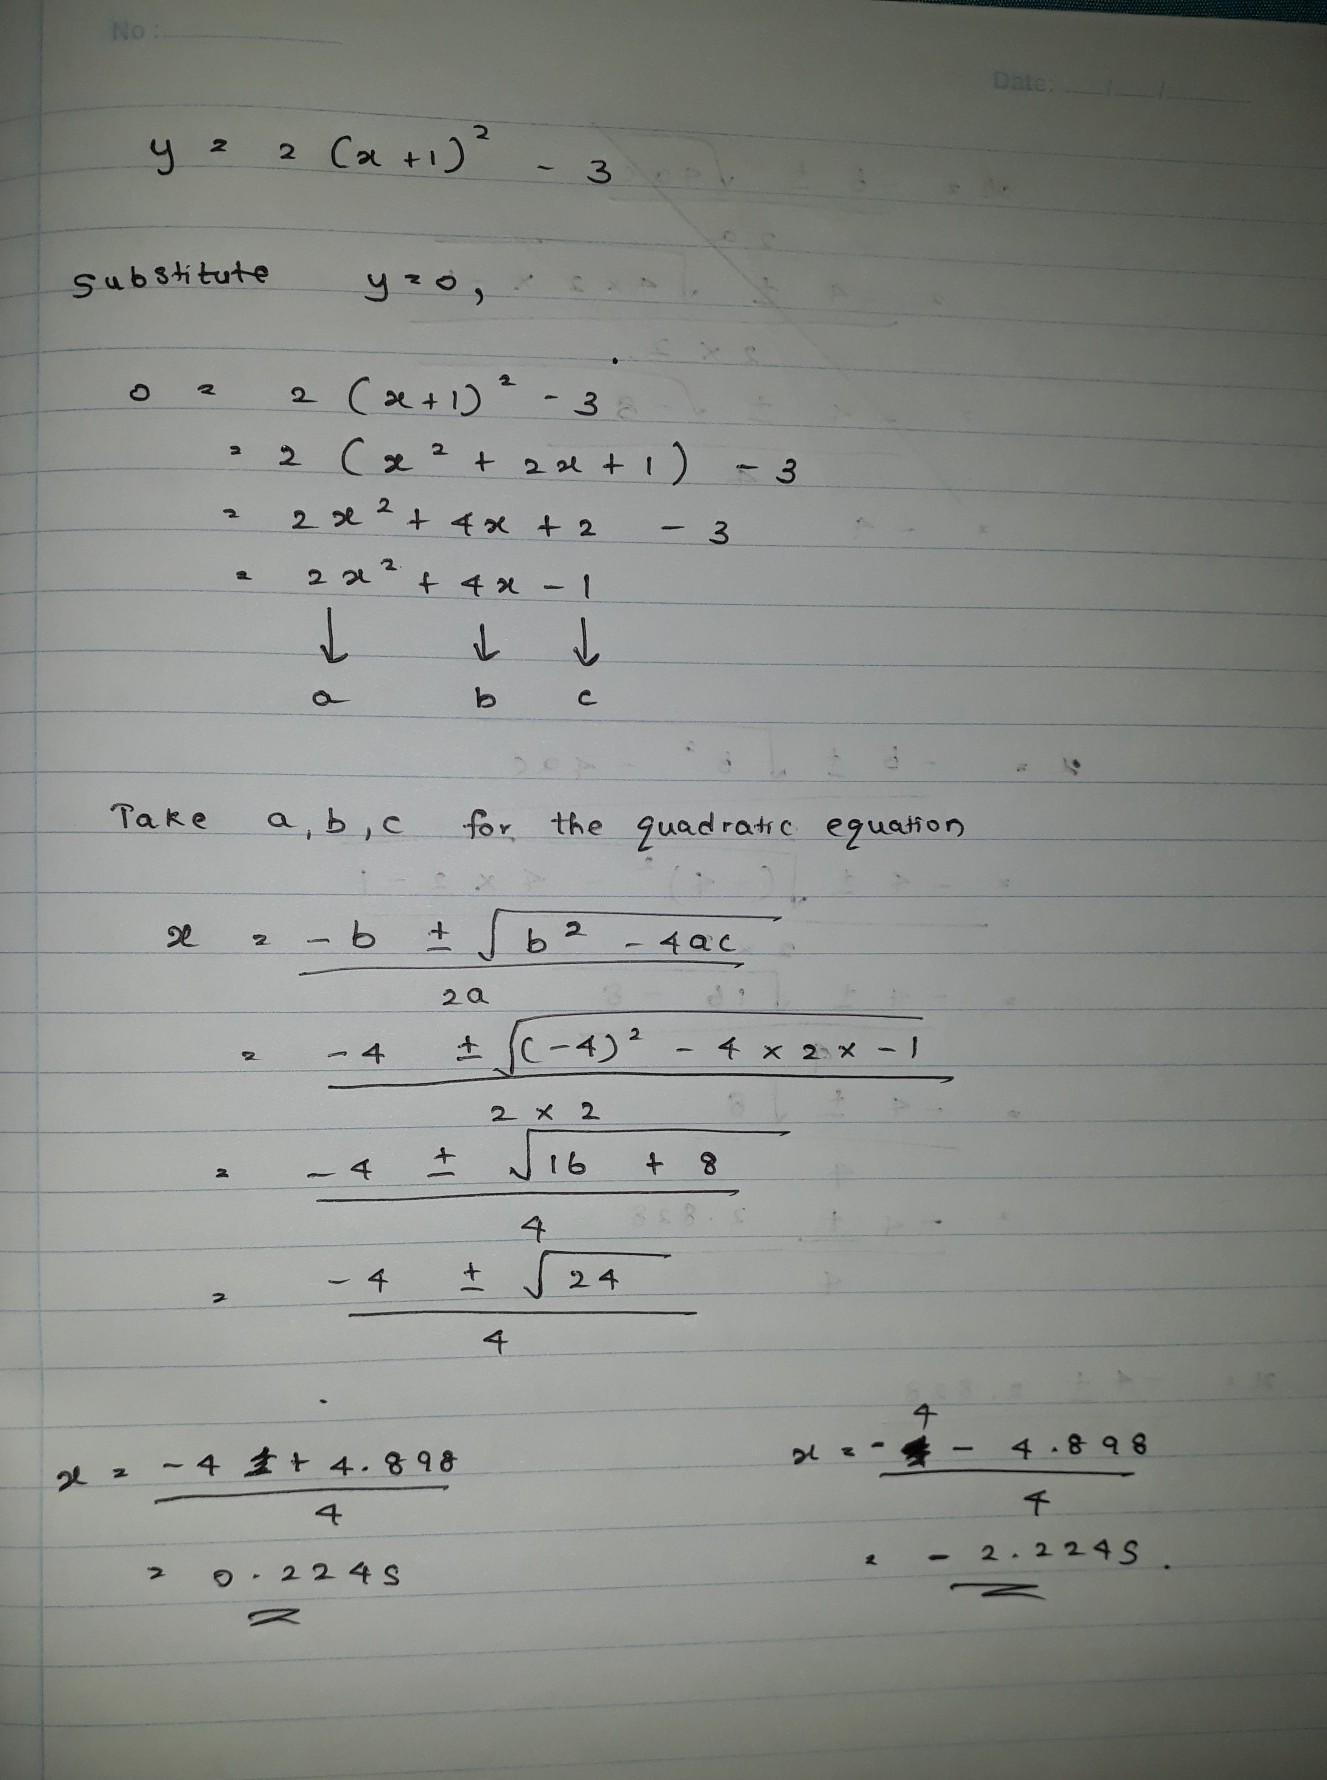 No :
Date: / /
y = 2 (x +1)² - 3
Substitute y=0,
0 = 2 (x+1)² - 3
= 2 (x² + 2x + 1) - 3
= 2x² + 4x + 2 - 3
= 2x² + 4x - 1
↓ ↓ ↓
a b c
Take a, b, c for the quadratic equation
x = - b ± √b² - 4ac
2a
= - 4 ± √(-4)² - 4 × 2 × - 1
2 × 2
= - 4 ± √16 + 8
4
= - 4 ± √24
4
x = - 4 + 4.898
4
= 0.2245
x = - 4 - 4.898
4
= - 2.2245.